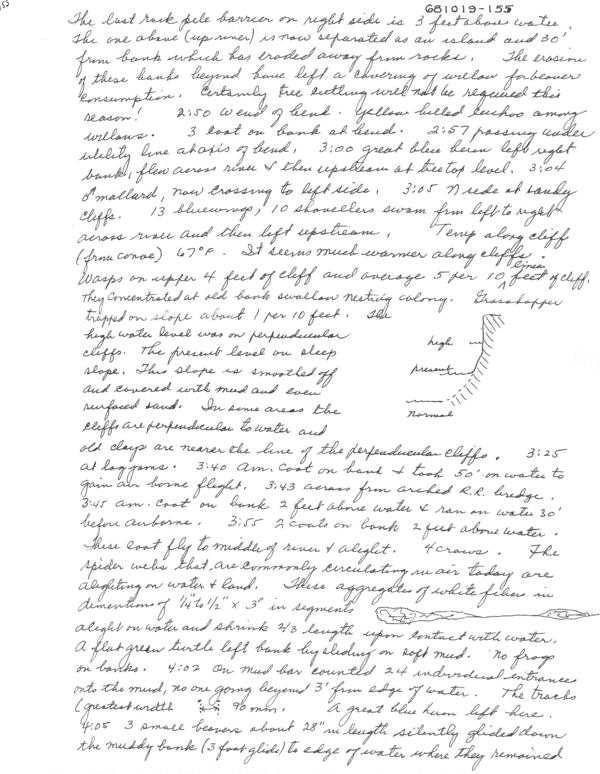 153
G81019-155
The last rock pile barrier on right side is 3 feet above water.
The one above (up river) is now separated as an island and 30'
from bank which has eroded away from rocks. The erosion
of these banks beyond have left a covering of willow for beaver
consumption. Certainly tree cutting will not be required this
season! 2:50 W end of bend. Yellow billed cuckoo among
willows. 3 coot on bank at bend. 2:57 passing under
utility line at axis of bend. 3:00 great blue heron left right
bank, flew across river & then upstream at tree top level. 3:04
♂ mallard, now crossing to left side. 3:05 N side at sandy
cliffs. 13 bluewings, 10 shovellers swam from left to right
across river and then left upstream. Temp along cliff
(from canoe) 67°F. It seems much warmer along cliffs.
Wasps on upper 4 feet of cliff and average 5 per 10 linear feet of cliff.
They concentrated at old bank swallow nesting colony. Grasshopper
trapped on slope about 1 per 10 feet. The
high water level was on perpendicular
cliffs. The present level on steep
slope. This slope is smoothed off
and covered with mud and even
surfaced sand. In some areas the
cliffs are perpendicular to water and
high
present
normal
old clays are nearer the line of the perpendicular cliffs. 3:25
at log jams. 3:40 am. coot on bank & took 50' on water to
gain air borne flight. 3:43 across from arched R.R. bridge.
3:45 am. coot on bank 2 feet above water & ran on water 30'
before airborne. 3:55 2 coots on bank 2 feet above water.
These coot fly to middle of river & alight. 4 crows. The
spider webs that are commonly circulating in air today are
alighting on water & land. These aggregates of white fiber in
dimentions of 1/4" to 1/2" x 3" in segments
alight on water and shrink 2/3 length upon contact with water.
A flat green turtle left bank by sliding on soft mud. No frogs
on banks. 4:02 On mud bar counted 24 individual entrance
onto the mud, no one going beyond 3' from edge of water. The tracks
(greatest width 90 mm. A great blue heron left here.
4:05 3 small beavers about 28" in length silently glided down
the muddy bank (3 foot glide) to edge of water where they remained